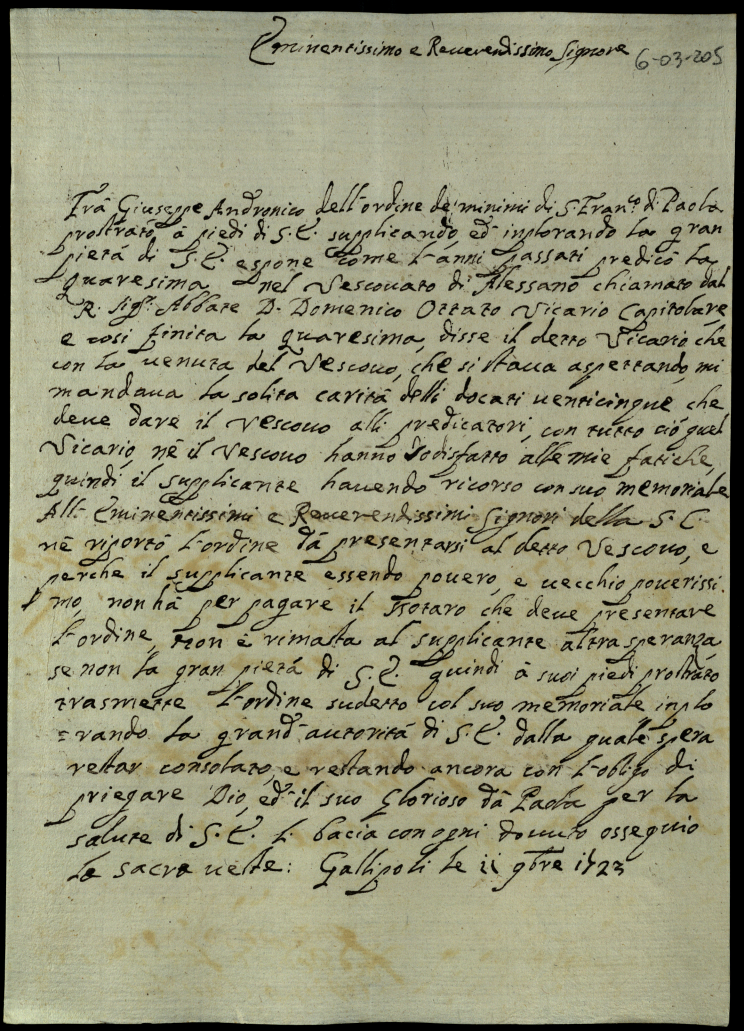 Eminentissimo e Reuerendissimo Signore
6-03-205
Frà Giuseppe Andronico dell'ordine de' minimi di S. Fran.co di Paola
prostrato à piedi di S. E. supplicando, ed inplorando la gran
pietà di S. E. espone come l'anni passati predicò la
quaresima nel Vescouato di Alessano chiamato dal
R. Sig.r Abbate D. Domenico Ottato Vicario Capitolare,
e così finita la quaresima, disse il detto Vicario che
con la uenuta del Vescouo, che si staua aspettando, mi
mandaua la solita carità delli docati uenticinque che
deue dare il Vescouo alli predicatori, con tutto ciò quel
Vicario, nè il Vescouo hanno sodisfatto alle mie fatiche,
quindi il supplicante hauendo ricorso con suo memoriale
All' Eminentissimi e Reuerendissimi Signori della S. C.
nè riportò l'ordine dà presentarsi al detto Vescouo, e
perche il supplicante essendo pouero, e uecchio pouerissi
mo, non hà per pagare il Notaro che deue presentare
l'ordine, non è rimasta al supplicante altra speranza,
se non la gran pietà di S. E. quindi à suoi piedi prostrato
trasmette l'ordine sudetto col suo memoriale inplo
=rando la grand'autorità di S. E. dalla quale spera
restar consolato, e restando ancora con l'obligo di
priegare Dio, ed il suo Glorioso dà Paola per la
salute di S. E. l. bacia con ogni douuto ossequio
la sacra ueste: Gallipoli le 11 9bre 1723